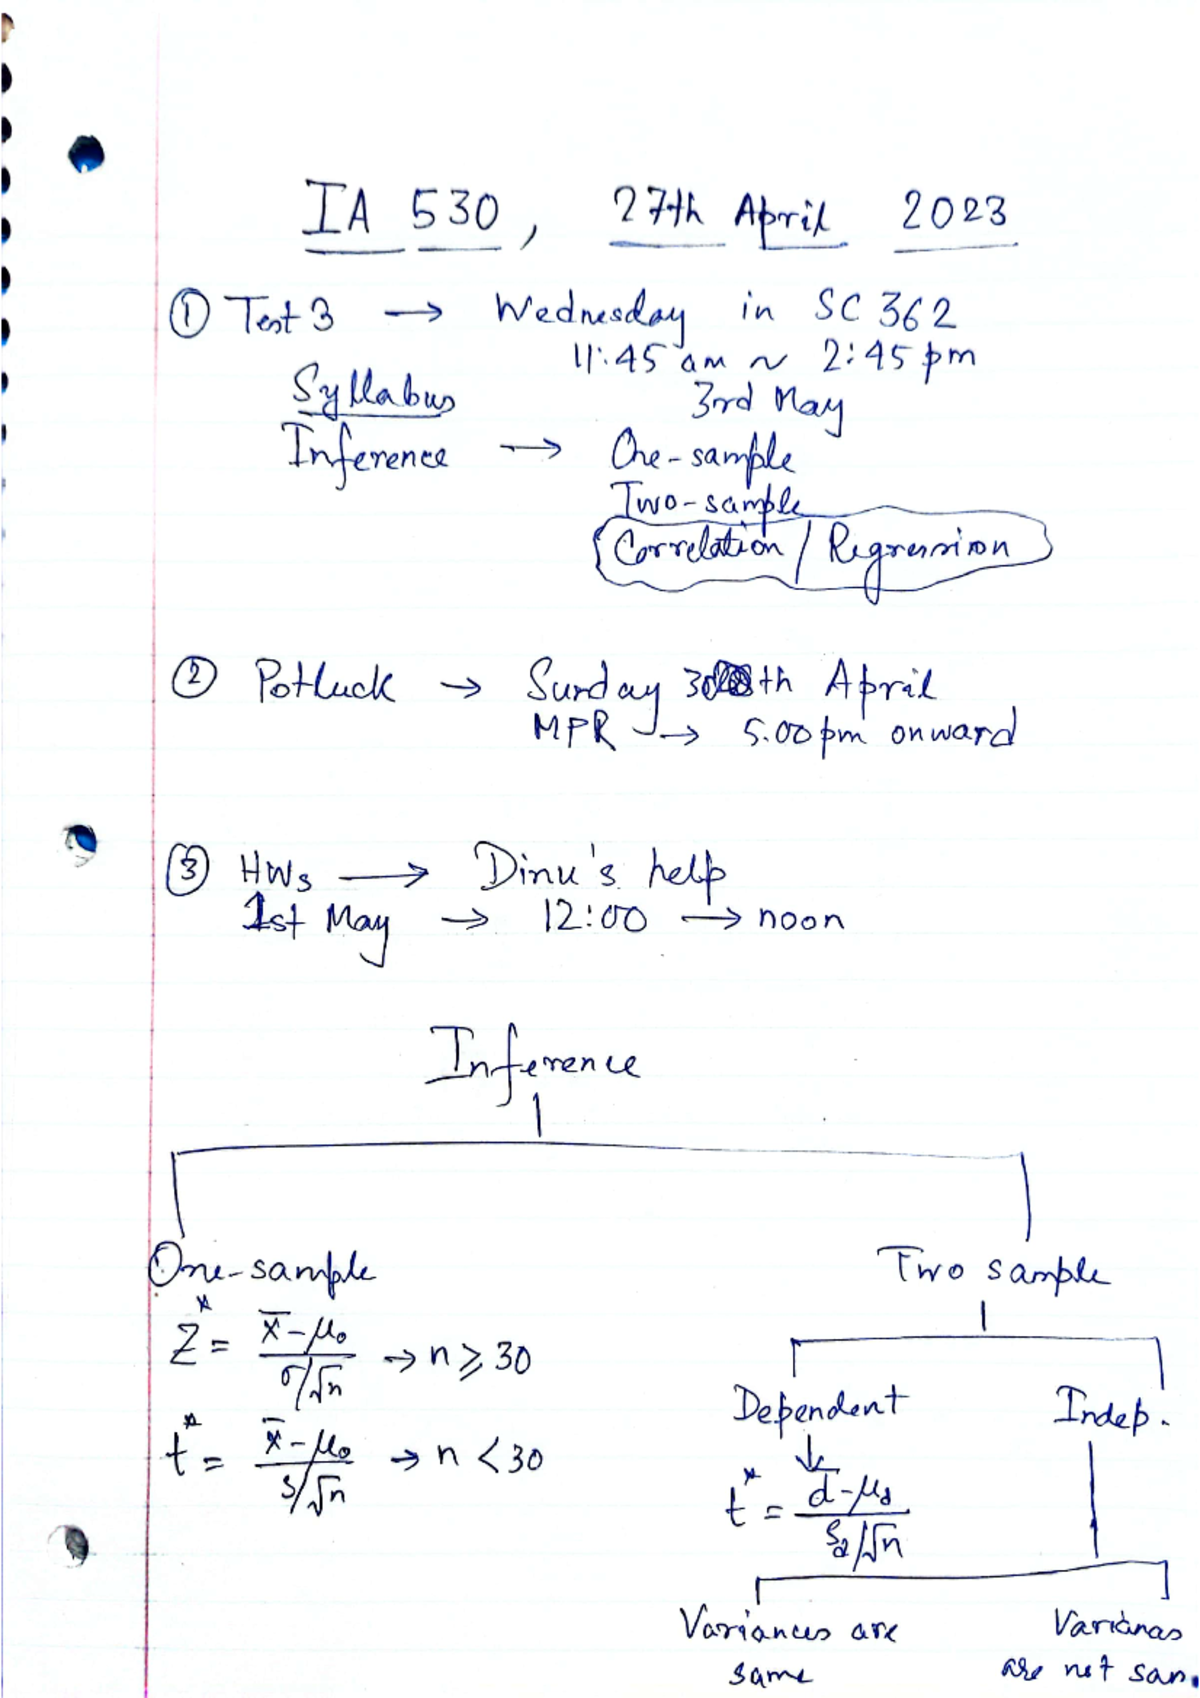 IA 530, 27th April 2023
① Test 3 → Wednesday in SC 362
11:45 am ~ 2:45 pm
Syllabus 3rd May
Inference → One-sample
Two-sample
Correlation / Regression
② Potluck → Sunday 30th April
MPR → 5:00 pm onward
③ HWs → Dinu's help
1st May → 12:00 → noon
Inference
One-sample Two sample
Z* = x̄ - μ₀ / σ/√n → n ≥ 30
Dependent Indep.
t* = x̄ - μ₀ / s/√n → n < 30
t* = d̄ - μd / sd/√n
Variances are same
Variances are not sam.